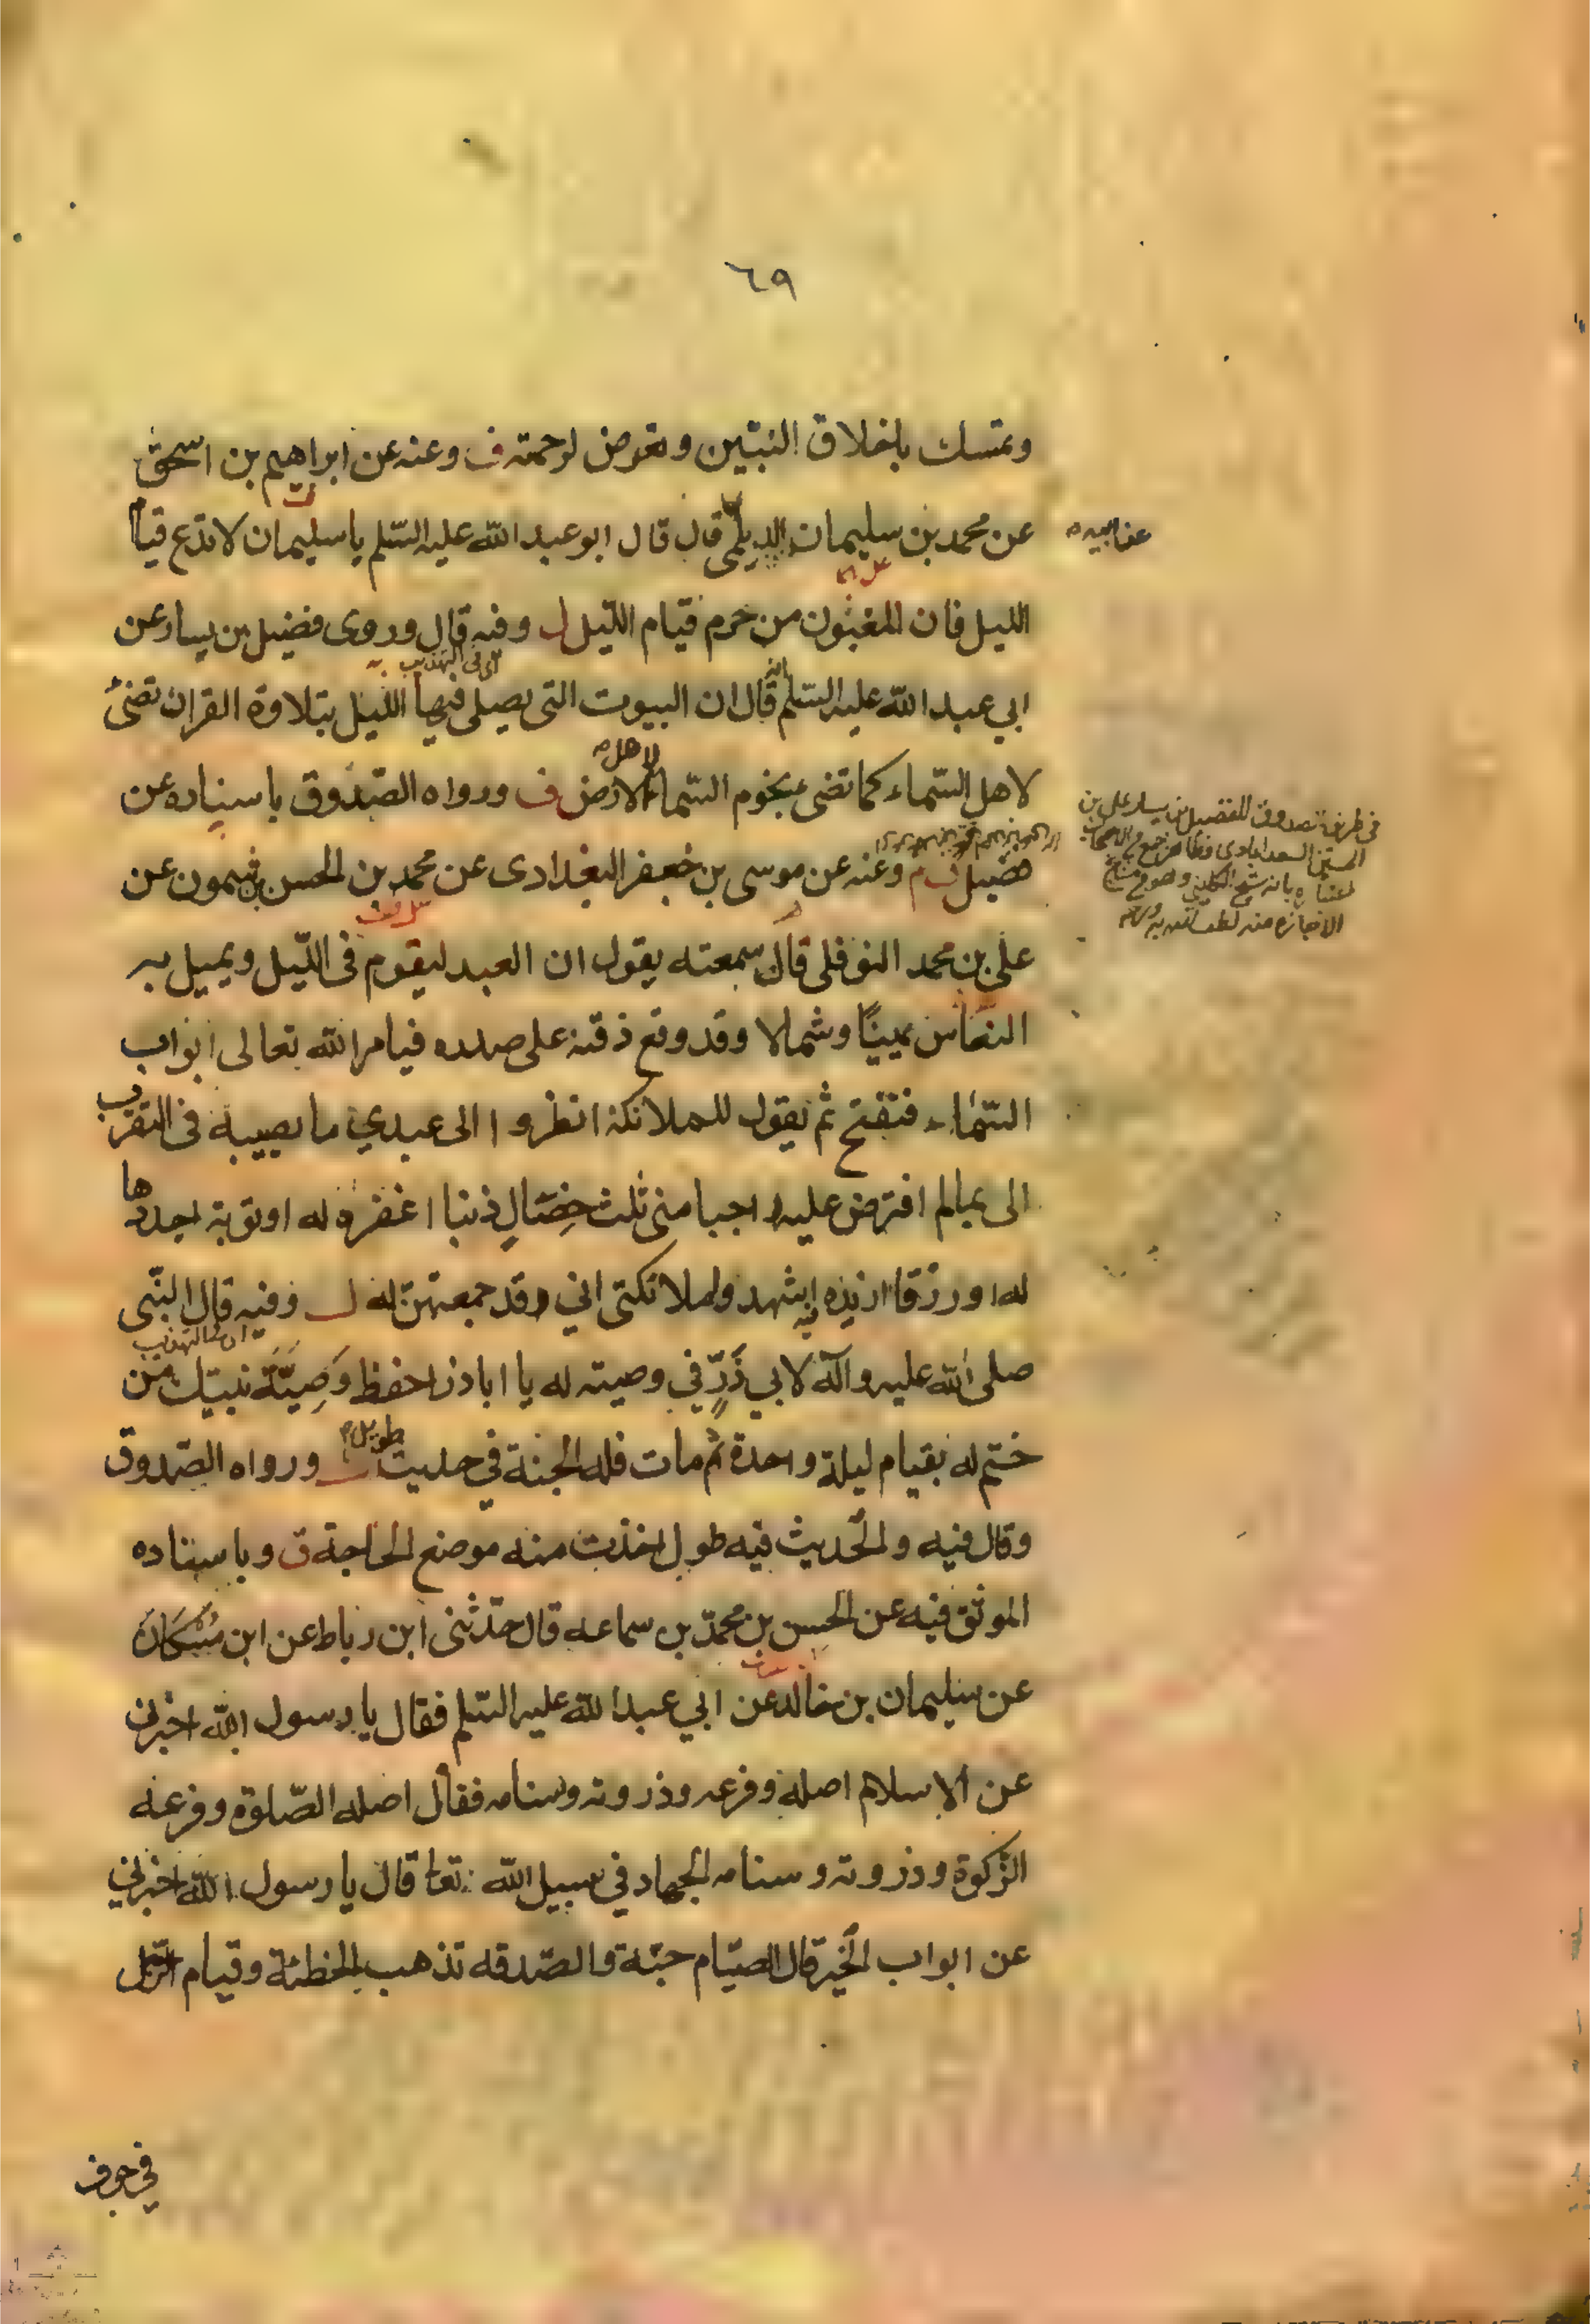 ٦٩
وتمسك باخلاق النبيّين وتعرض لرحمته ف وعنه عن ابراهيم بن اسحق
عن محمد بن سليمان الديلمى قال قال ابو عبد الله عليه السّلم يا سليمان لا تدع قيام
عن ابيه
الليل فان المغبون من حرم قيام اللّيل ل وفيه قال وروى فضيل بن يسار عن
اى فى التهذيب
ابي عبد الله عليه السّلم انه قال ان البيوت التى يصلى فيها الليل بتلاوة القران تضئ
لاهل السّماء كما تضئ نجوم السّماء لاهل الارض ف ورواه الصّدوق باسناده عن
فضيل ف م وعنه عن موسى بن جعفر البغدادى عن محمد بن الحسن بن شمون عن
على بن محمد النوفلى قال سمعته يقول ان العبد ليقوم فى اللّيل ويميل به
النعاس يمينًا وشمالا وقد وقع ذقنه على صدره فيامر الله تعالى ابواب
السّماء فتفتح ثم يقول للملائكة انظروا الى عبدي ما يصيبه فى التقرب
الى بما لم افترض عليه راجيا منى ثلث خصالٍ ذنبا اغفره له او توبة اجددها
له او رزقا ازيده فيه اشهدوا ملائكتى اني قد جمعتهنّ له ل وفيه قال النّبى
صلى الله عليه وآله لابي ذَرٍّ في وصيته له يا اباذر احفظ وَصِيَّةَ نبيّك من
ختم له بقيام ليلة واحدة ثم مات فله الجنة في حديث طويل ورواه الصّدوق
وقال فيه والحديث فيه طول اخذت منه موضع الحاجة ق وباسناده
الموثق فيه عن الحسن بن محمّد بن سماعه قال حدّثنى ابن رباط عن ابن مُسْكَانَ
عن سليمان بن خالد عن ابي عبد الله عليه السّلم فقال يا رسول الله اخبرنى
عن الاسلام اصله وفرعه وذروته وسنامه فقال اصله الصّلوة وفرعه
الزّكوة وذروته وسنامه الجهاد في سبيل الله تعا قال يا رسول الله اخبرني
عن ابواب الخير قال الصيّام جنّة والصّدقه تذهب الخطئة وقيام الرّجل
في جوف